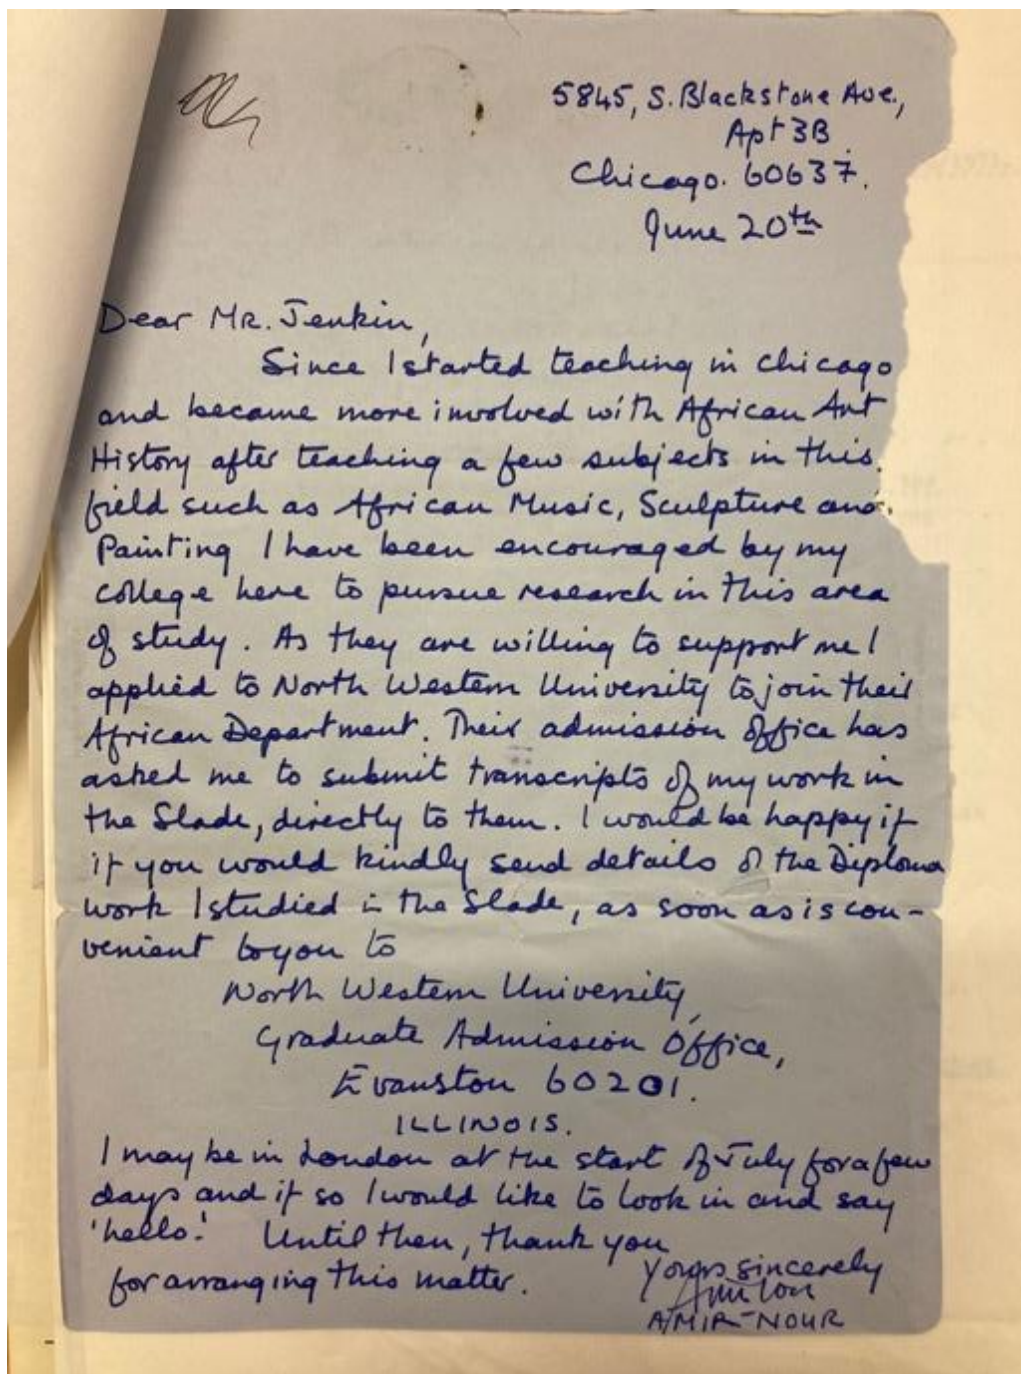 5845, S. Blackstone Ave.,
Apt 3B.
Chicago. 60637.
June 20th
Dear Mr. Jenkin,
Since I started teaching in Chicago
and became more involved with African Art
History after teaching a few subjects in this
field such as African Music, Sculpture and
Painting I have been encouraged by my
college here to pursue research in this area
of study. As they are willing to support me I
applied to North Western University to join their
African Department. Their admission office has
asked me to submit transcripts of my work in
the Slade, directly to them. I would be happy if
if you would kindly send details of the Diploma
work I studied in the Slade, as soon as is con-
venient to you to
North Western University,
Graduate Admission Office,
Evanston 60201.
ILLINOIS.
I may be in London at the start of July for a few
days and if so I would like to look in and say
'hello.' Until then, thank you
for arranging this matter.
Yours sincerely
AMIR NOUR